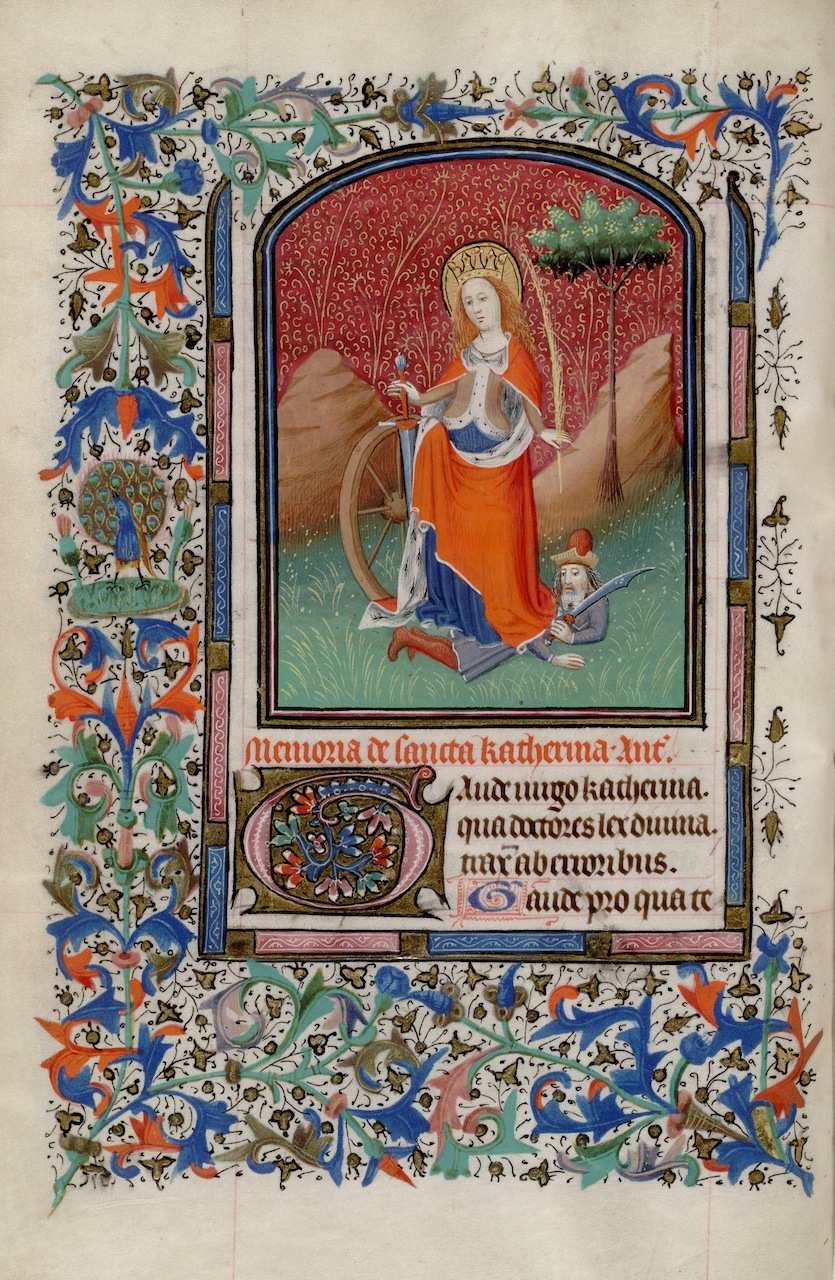 Memoria de sancta katherina. Ant̄.
GAude uirgo katherina.
qua doctores lex diuina.
trax̄ ab erroribus.
Gaude pro qua te